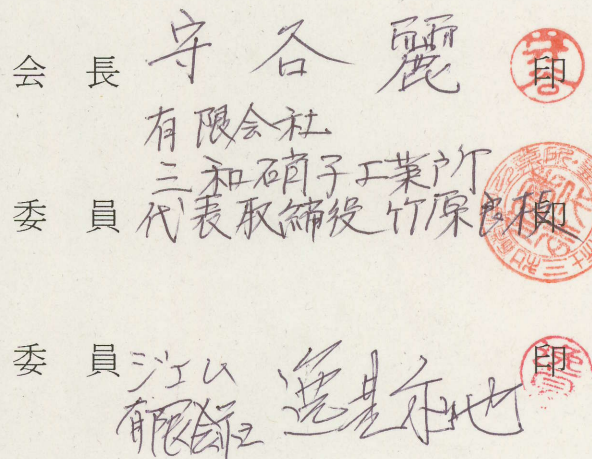 会長 守谷 麗 印
有限会社
三和硝子工業所
委員 代表取締役 竹原良 印
委員 ジェム 印
有限会社